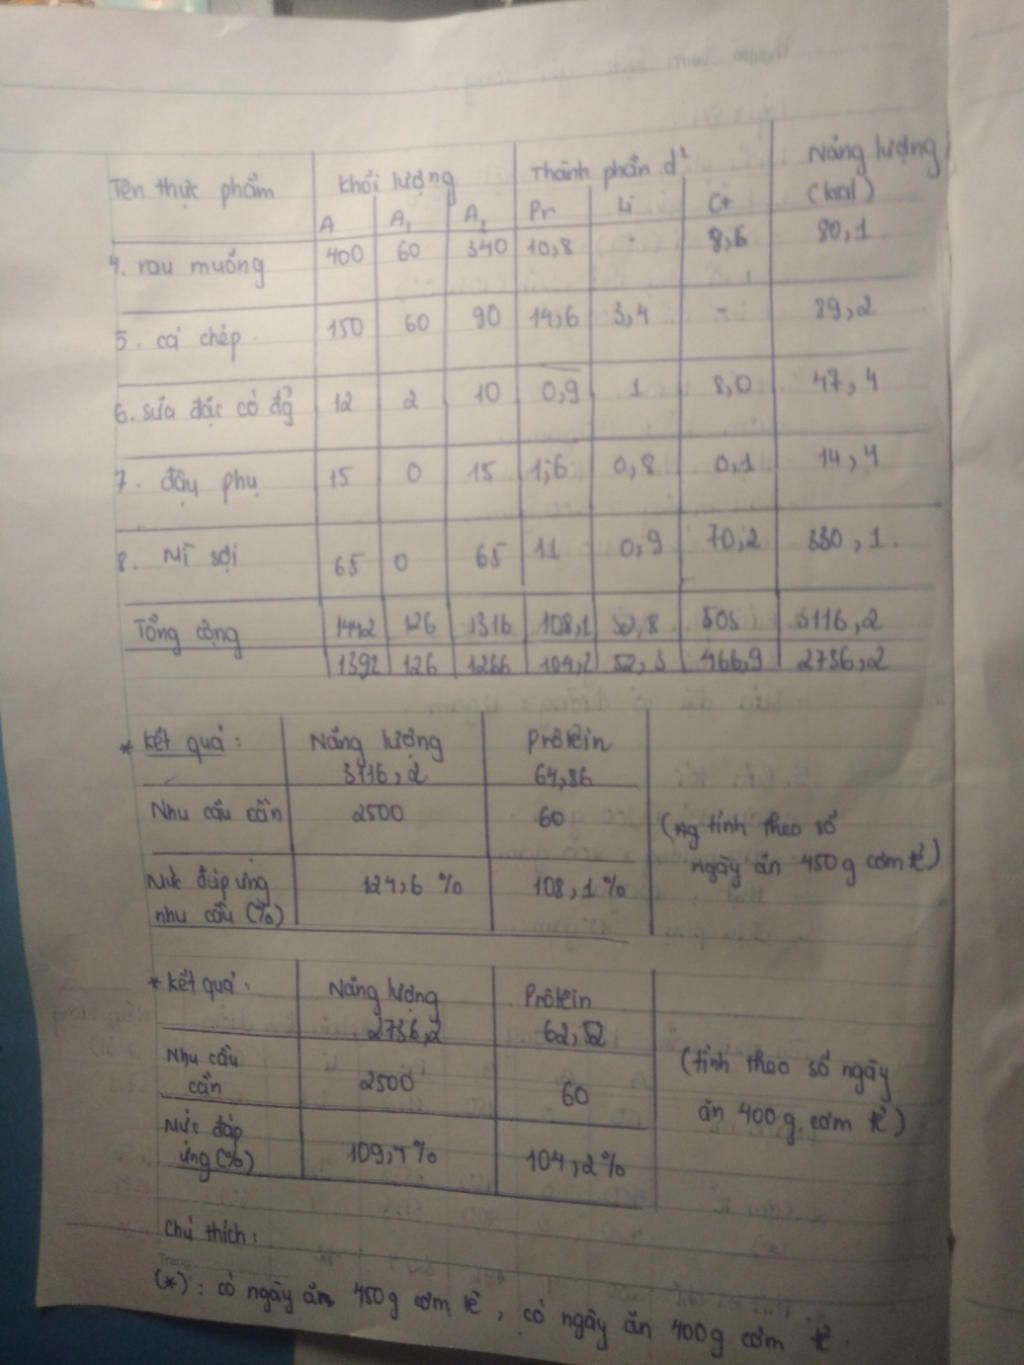 Tên thực phẩm Khối lượng Thành phần d² Năng lượng
A A₁ A₂ Pr Li Ct (kcal)
4. rau muống 400 60 340 10,8 - 8,6 80,1
5. cá chép 150 60 90 14,6 3,4 - 89,2
6. sữa đặc có đg 12 2 10 0,9 1 8,0 47,4
7. đậu phụ 15 0 15 1,6 0,8 0,1 14,4
8. Mì sợi 65 0 65 11 0,9 70,2 330,1
Tổng cộng 1442 126 1316 108,1 52,8 505 3116,2
1392 126 1266 104,2 52,3 466,9 2736,2
* Kết quả: Năng lượng Prôtêin
3116,2 64,86
Nhu cầu cần 2500 60 (tính theo số
ngày ăn 450g cơm tẻ)
Mức đáp ứng 124,6 % 108,1 %
nhu cầu (%)
* Kết quả: Năng lượng Prôtêin
2736,2 62,52
Nhu cầu
cần 2500 60 (tính theo số ngày
ăn 400g cơm tẻ)
Mức đáp
ứng (%) 109,4% 104,2%
Chú thích:
(*): có ngày ăn 450g cơm tẻ, có ngày ăn 400g cơm tẻ.